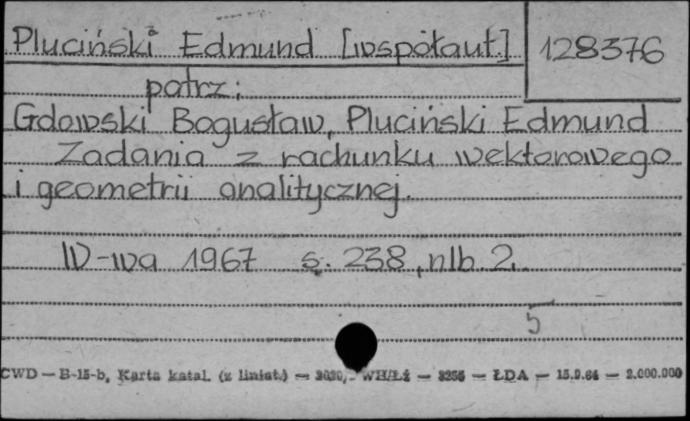 Pluciński Edmund [współaut.]
128376
patrz:
Gdowski Bogusław, Pluciński Edmund
Zadania z rachunku wektorowego
i geometrii analitycznej.
W-wa 1967 s. 238, nlb. 2.
5
CWD — B-15-b, Karta katal. (z liniat.) — WH/Łź — — ŁDA — 15.9.64 — 2.000.000